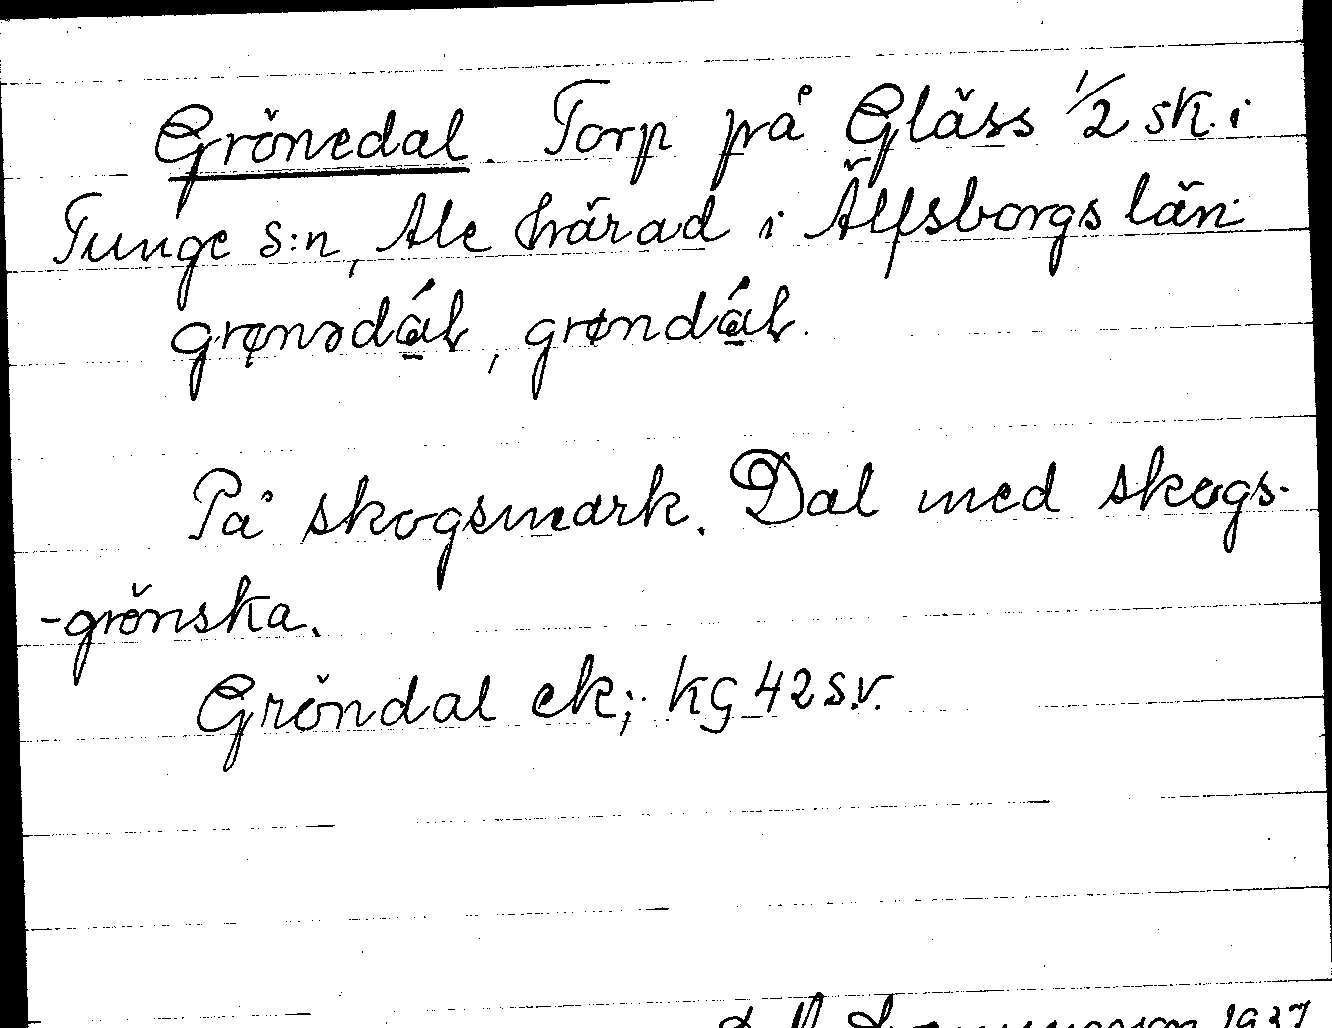 Grönedal. Torp på Gläss 1/2 sk. i
Tunge s:n, Ale härad i Älfsborgs län
grønədál, grøndál.
På skogsmark. Dal med skogs-
-grönska.
Gröndal ek; kg 42 s.v.
1937